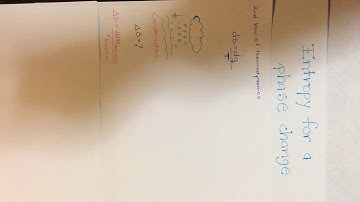 Entropy for a
phase change
2nd law of thermodynamics
ds = dq
T
Condensation
ΔS = ?